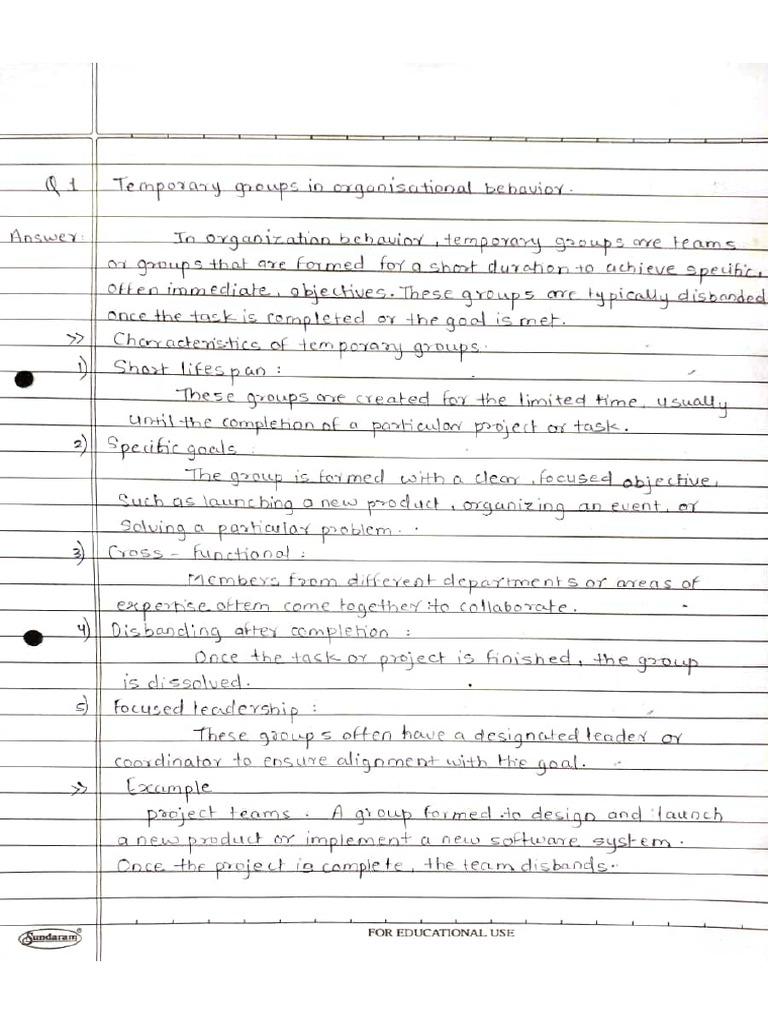 Q 1 Temporary groups in organisational behavior.
Answer: In organization behavior, temporary groups are teams
or groups that are formed for a short duration to achieve specific,
often immediate, objectives. These groups are typically disbanded
once the task is completed or the goal is met.
>> Characteristics of temporary groups.
1) Short lifespan :
These groups are created for the limited time, usually
until the completion of a particular project or task.
2) Specific goals :
The group is formed with a clear, focused objective,
such as launching a new product, organizing an event, or
solving a particular problem.
3) Cross - functional :
Members from different departments or areas of
expertise often come together to collaborate.
4) Disbanding after completion :
Once the task or project is finished, the group
is dissolved.
5) Focused leadership :
These groups often have a designated leader or
coordinator to ensure alignment with the goal.
>> Example
project teams. A group formed to design and launch
a new product or implement a new software system.
Once the project is complete, the team disbands.
Sundaram® FOR EDUCATIONAL USE